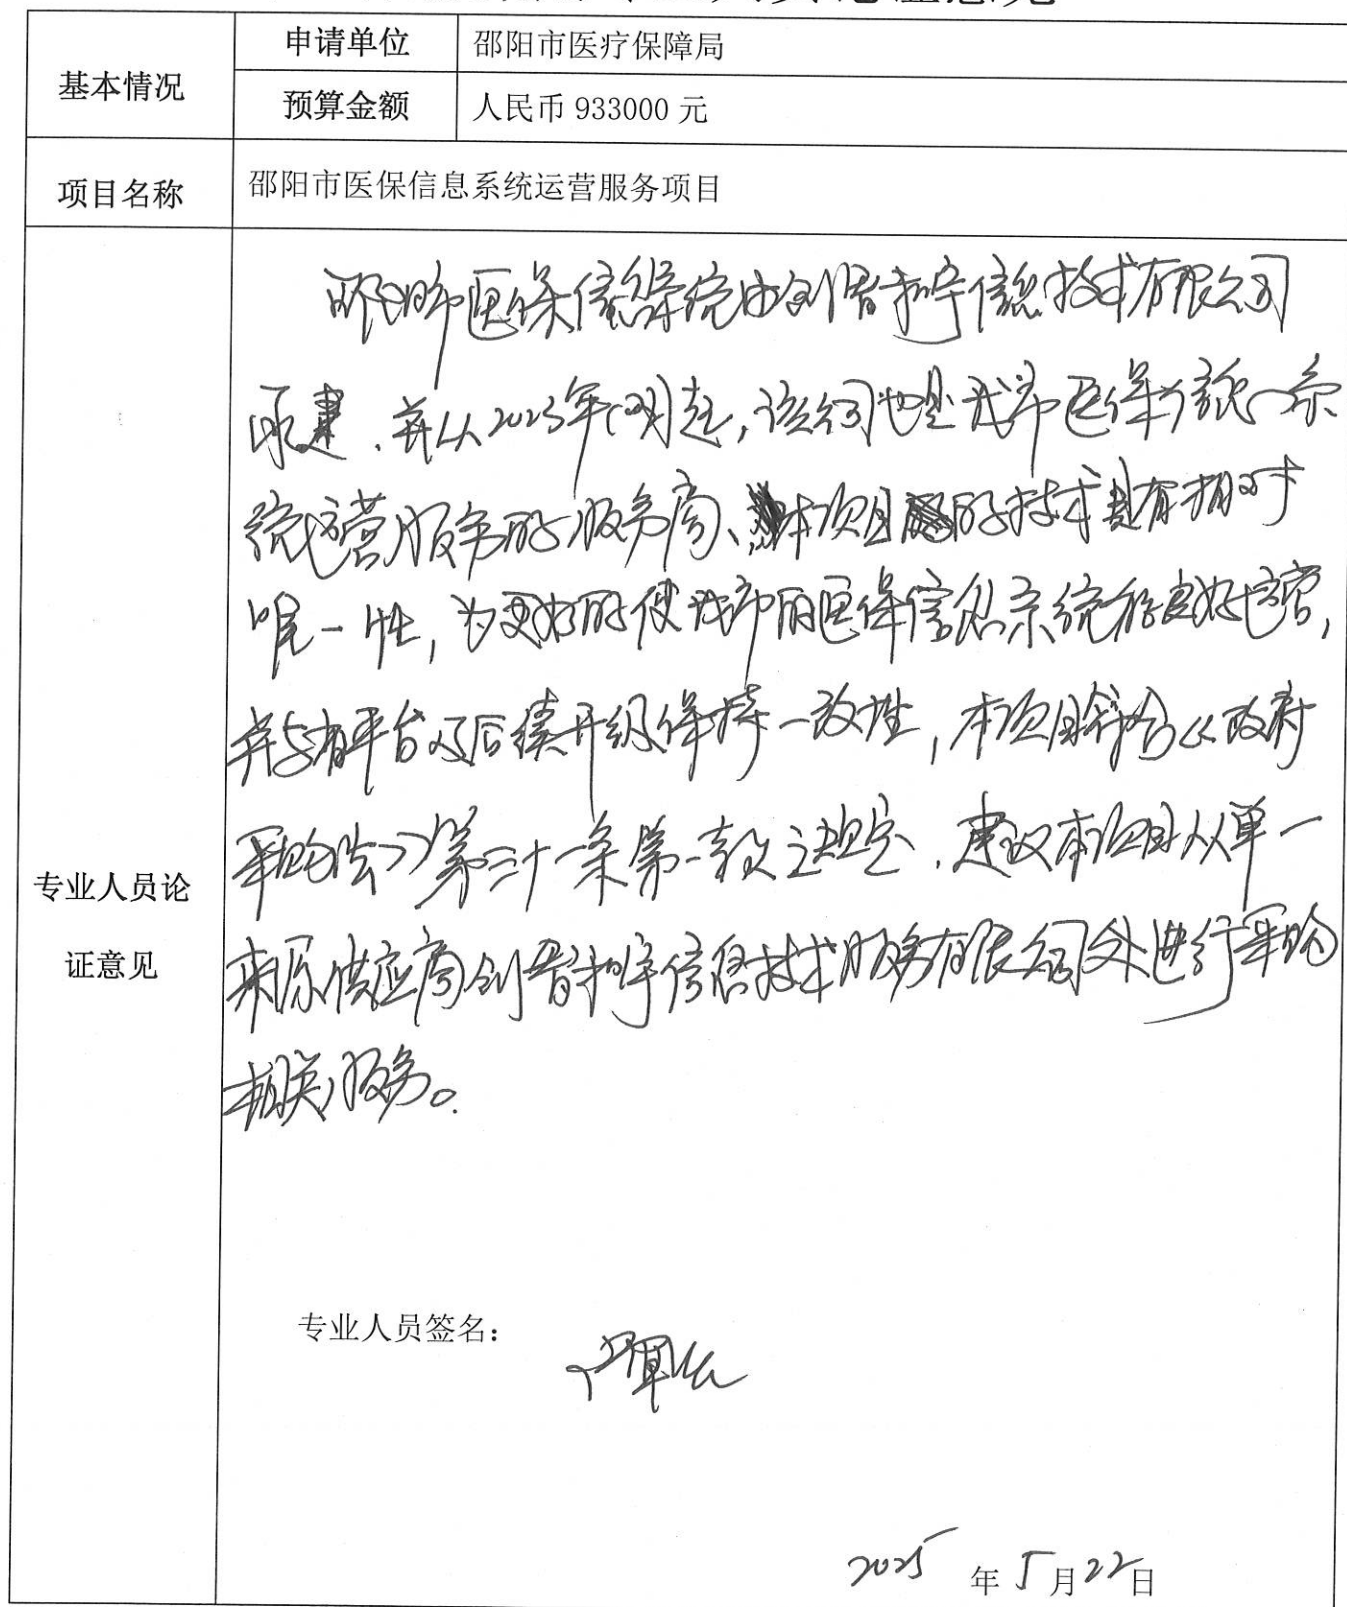 基本情况
申请单位
邵阳市医疗保障局
预算金额
人民币 933000 元
项目名称
邵阳市医保信息系统运营服务项目
专业人员论
证意见
邵阳市医保信息系统由创智和宇信息技术有限公司
承建,并从2023年 起,该公司也是我市医保信息系
统运营服务的服务商、本项目的技术具有相对
唯一性,为更好的使我市的医保信息系统 良好运营,
并与 平台及后续升级保持一致性,本项目符合《政府
采购法》第三十一条第一款之规定,建议本项目从单一
来源供应商创智和宇信息技术服务有限公司处进行采购
相关服务。
专业人员签名:
2025 年 5 月 22 日